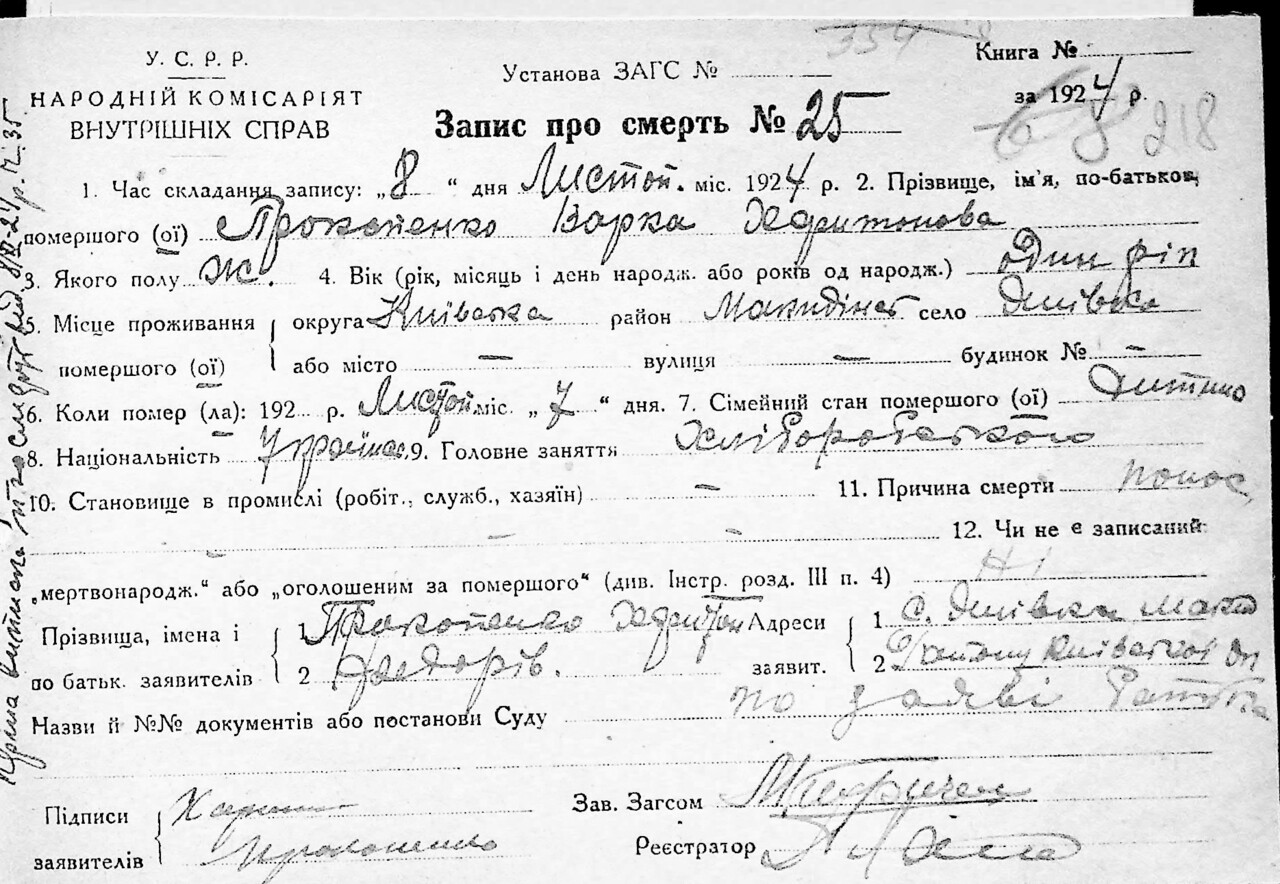 354
У. С. Р. Р.
НАРОДНІЙ КОМІСАРІЯТ
ВНУТРІШНІХ СПРАВ
Установа ЗАГС №
Книга №
за 1924 р.
68 218
Запис про смерть № 25
1. Час складання запису: „8“ дня Листоп. міс. 1924 р. 2. Прізвище, ім'я, по-батькові
помершого (ої) Прокопенко Варка Харитонова
3. Якого полу Ж. 4. Вік (рік, місяць і день народж. або років од народж.) Один рік
5. Місце проживання помершого (ої) округа Київська район село
або місто — вулиця — будинок № —
6. Коли помер (ла): 192 р. Листоп міс. „7“ дня. 7. Сімейний стан помершого (ої) Дитина
8. Національність 9. Головне заняття
10. Становище в промислі (робіт., служб., хазяїн) — 11. Причина смерти понос
12. Чи не є записаний
„мертвонароджˮ. або „оголошеним за помершого“ (див. Інстр. розд. III п. 4) Ні
Прізвища, імена і по батьк. заявителів
1 Прокопенко Харитон
2 Федорів.
Адреси заявит.
1 с.
2
Назви й №№ документів або постанови Суду по заяві батька
Підписи заявителів
Прокопенко
Зав. Загсом
Реєстратор